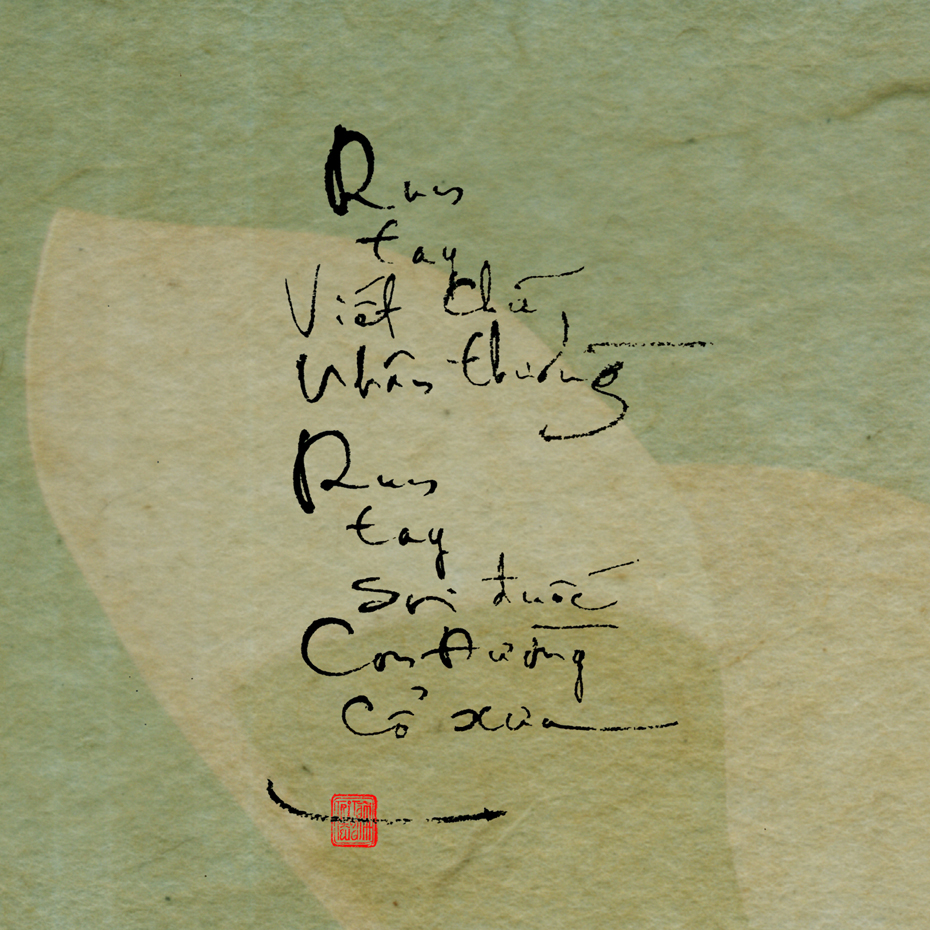 Run
tay
Viết chữ
Nhân thường
Run
tay
Soi đuốc
Con Đường
Cổ xưa